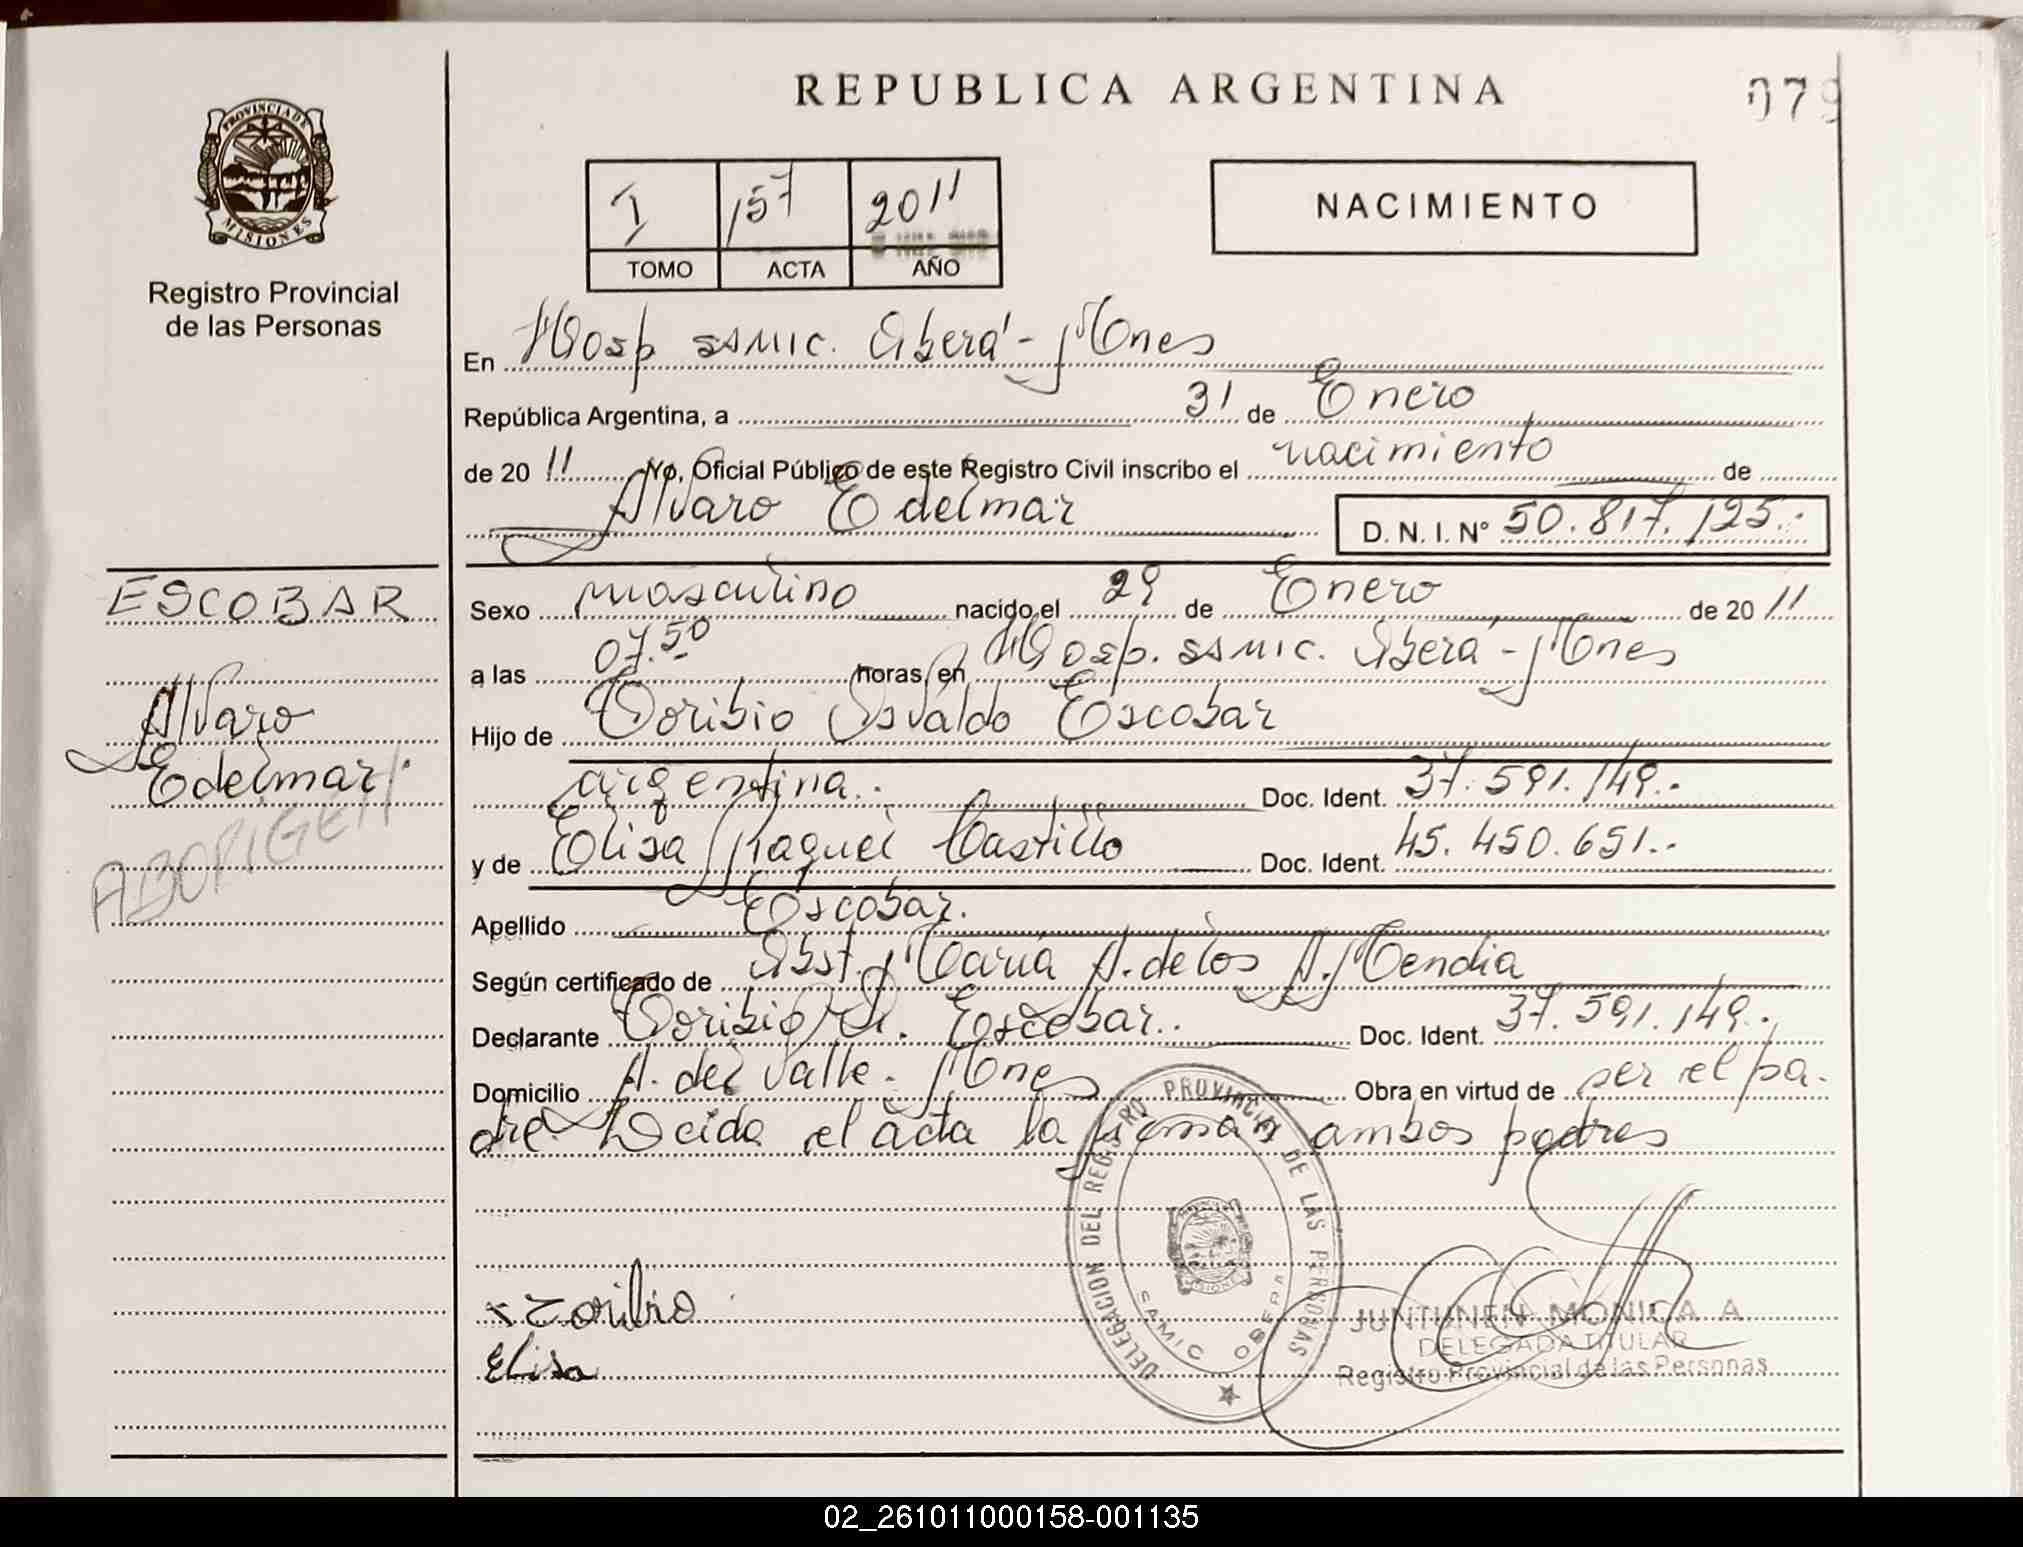 REPUBLICA ARGENTINA
079
PROVINCIA DE
MISIONES
Registro Provincial
de las Personas
I 157 2011
TOMO ACTA AÑO
NACIMIENTO
En Hosp SAMIC. Oberá - Mnes
República Argentina, a 31 de Enero
de 20 11 Yo, Oficial Público de este Registro Civil inscribo el nacimiento de
Alvaro Edelmar D. N. I. Nº 50.817.125.-
ESCOBAR
Alvaro
Edelmar.
ABORIGEN
Sexo masculino nacido el 29 de Enero de 20 11
a las 07.50 horas en Hosp. SAMIC. Oberá - Mnes
Hijo de Toribio Osvaldo Escobar
argentina.. Doc. Ident. 37.591.149.-
y de Elisa Raquel Castillo Doc. Ident. 45.450.651.-
Apellido Escobar.
Según certificado de Obst. María A. de los A. Mendia
Declarante Toribio O. Escobar.. Doc. Ident. 37.591.149.-
Domicilio A. del Valle - Mnes Obra en virtud de ser el pa-
dre. Leida el acta la firman ambos padres
Toribio
Elisa
DELEGACION DEL REGISTRO PROVINCIAL DE LAS PERSONAS
SAMIC OBERA
JUNTUNEN MONICA A
DELEGADA TITULAR
Registro Provincial de las Personas
02_261011000158-001135